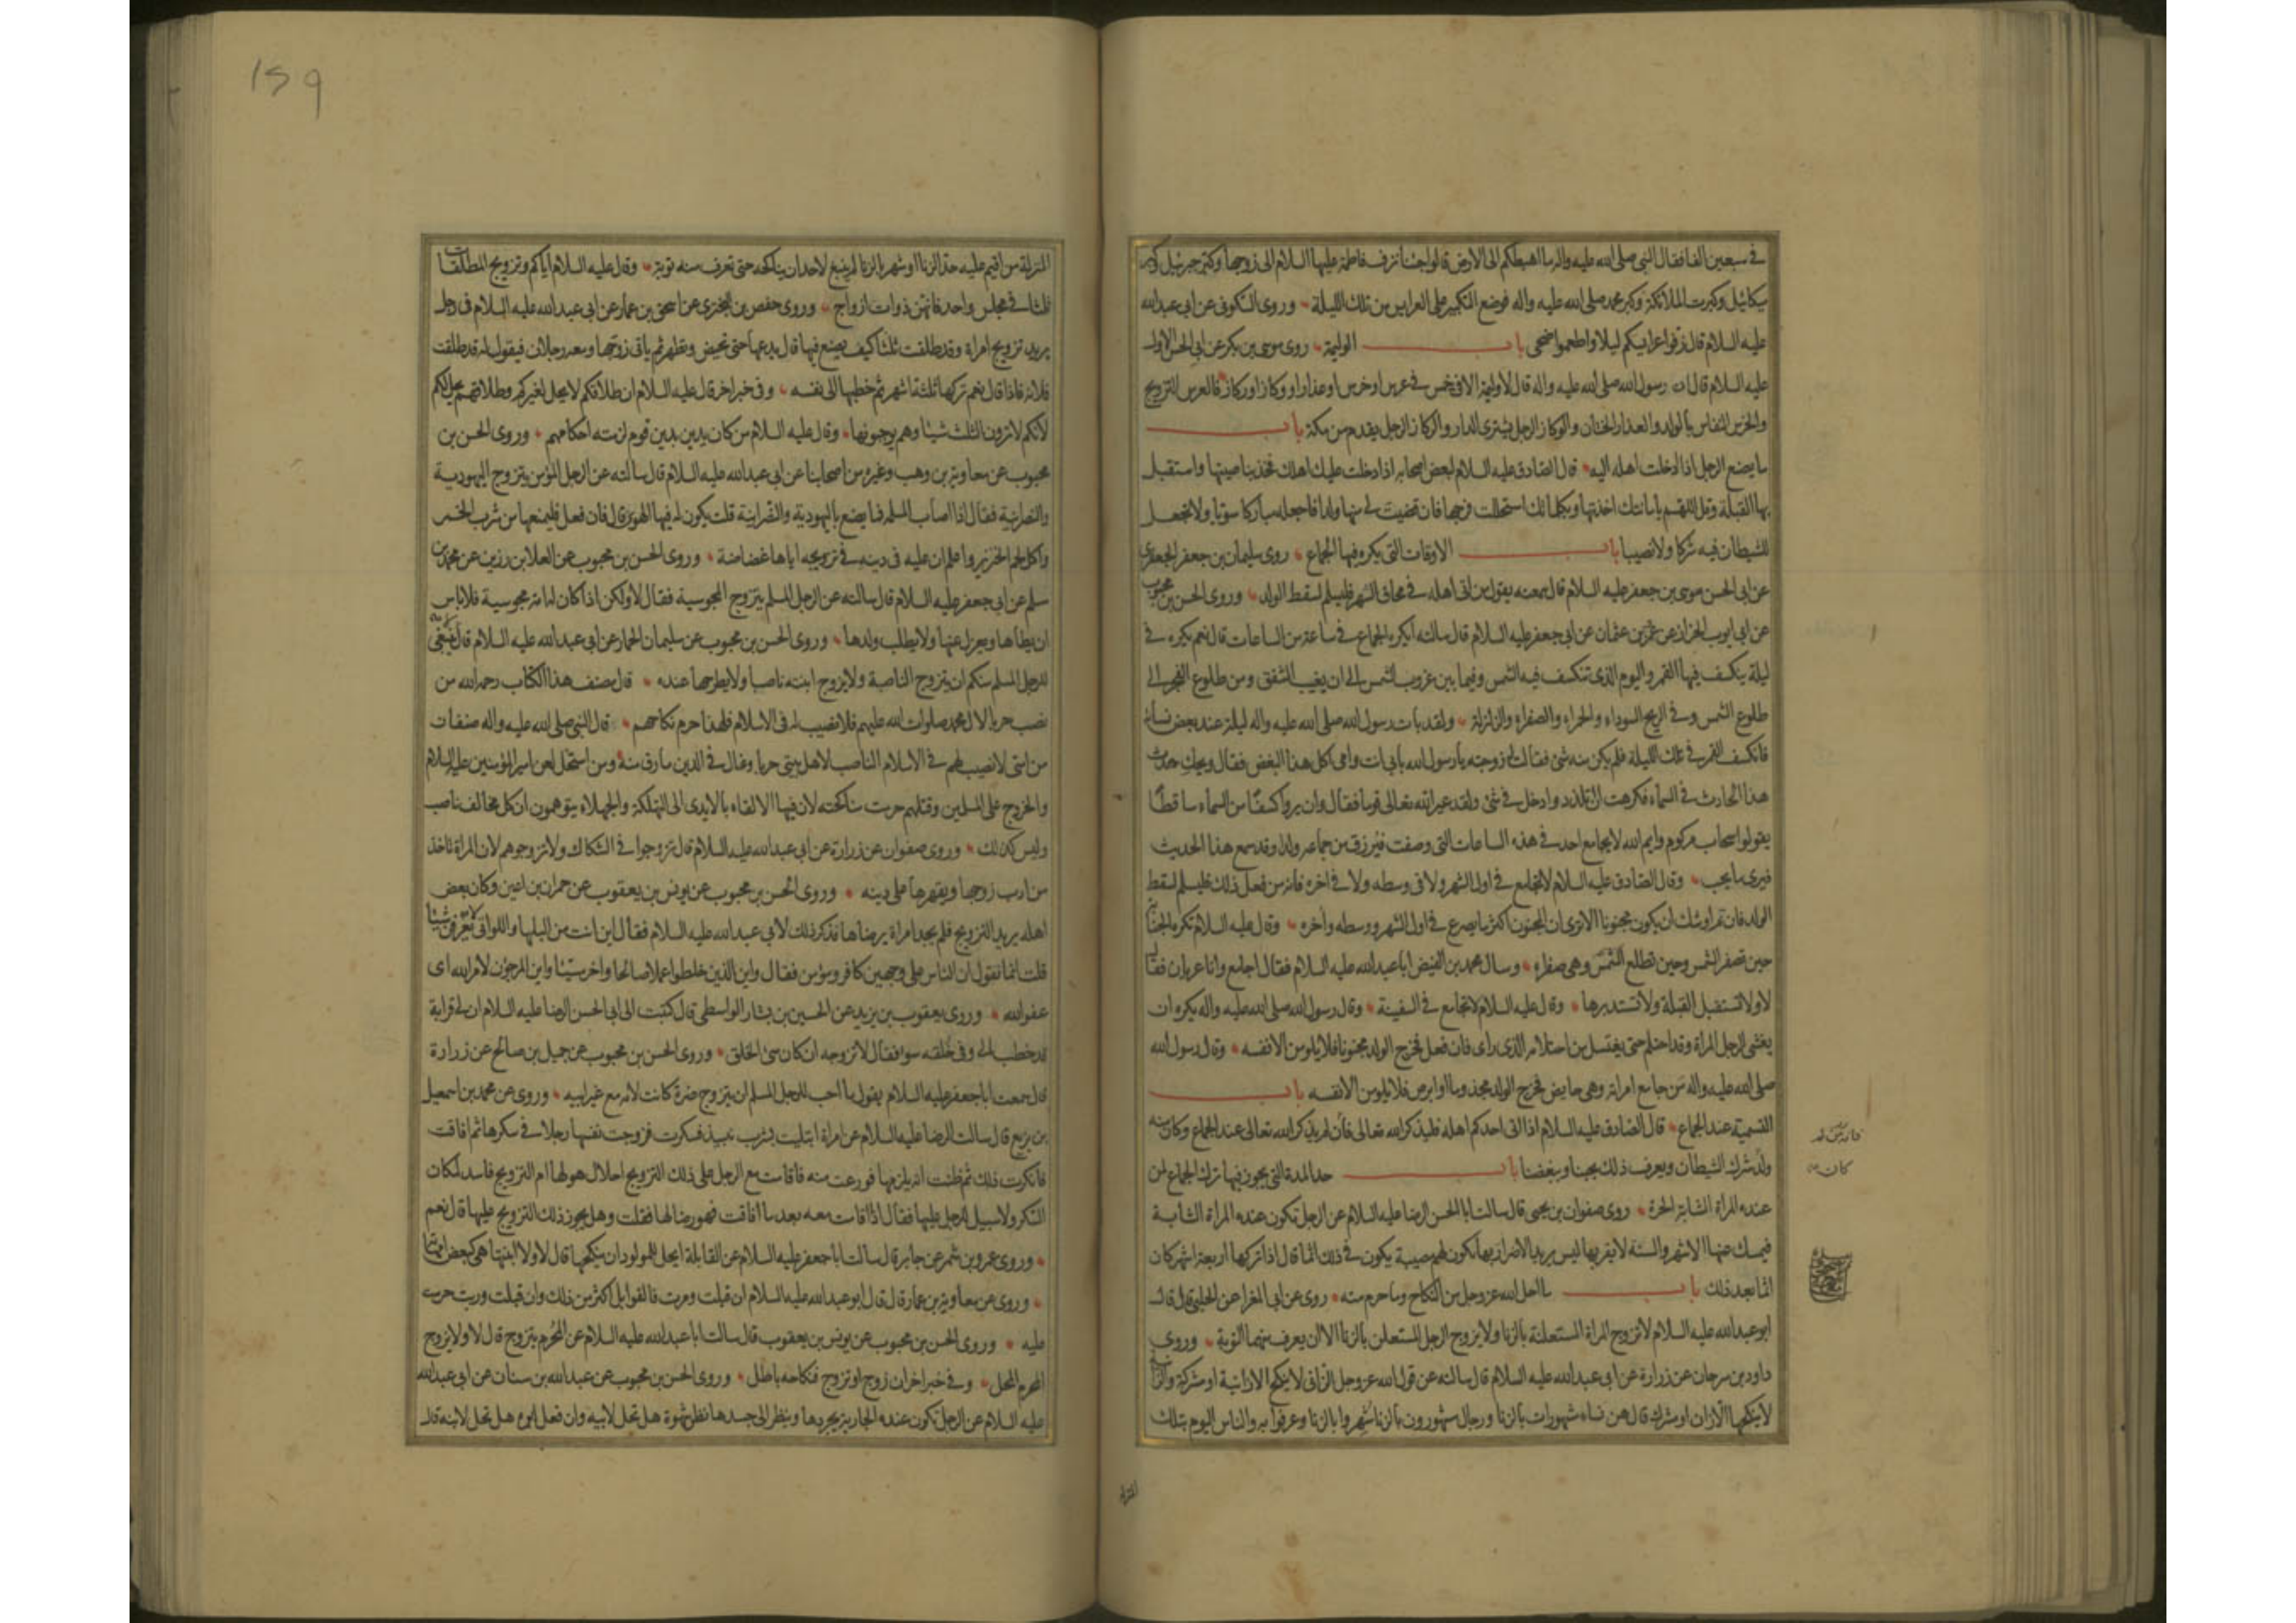 في سبعين الفا فقال النبي صلى الله عليه واله ما اهبطكم الى الارض قالوا جئنا نزف فاطمة عليها السلام الى زوجها وكبر جبرئيل وكبر
ميكائيل وكبرت الملائكة وكبر محمد صلى الله عليه واله فوضع التكبير على العرايس من تلك الليلة وروى السكونى عن ابى عبدالله
عليه السلام قال زفوا عرايسكم ليلا واطعموا ضحى باب الوليمة روى موسى بن بكر عن ابى الحسن الاول
عليه السلام قال ان رسول الله صلى الله عليه واله قال لا وليمة الا فى خمس فى عرس او خرس او عذار او وكاز او ركاز فالعرس التزويج
والخرس النفاس بالولد والعذار الختان والوكاز الرجل يشترى الدار والركاز الرجل يقدم من مكة باب
ما يصنع الرجل اذا ادخلت اهله اليه قال الصادق عليه السلام لبعض اصحابه اذا دخلت عليك اهلك فخذ بناصيتها واستقبل
بها القبلة وقل اللهم بامانتك اخذتها وبكلماتك استحللت فرجها فان قضيت لى منها ولدا فاجعله مباركا سويا ولا تجعل
للشيطان فيه شركا ولا نصيبا باب الاوقات التى يكره فيها الجماع روى سليمان بن جعفر الجعفرى
عن ابى الحسن موسى بن جعفر عليه السلام قال سمعته يقول من اتى اهله فى محاق الشهر فليسلم لسقط الولد وروى الحسن بن محبوب
عن ابى ايوب الخزاز عن عمرو بن عثمان عن ابى جعفر عليه السلام قال سالته ايكره الجماع فى ساعة من الساعات قال نعم يكره فى
ليلة ينكسف فيها القمر واليوم الذى تنكسف فيه الشمس وفيما بين غروب الشمس الى ان يغيب الشفق ومن طلوع الفجر الى
طلوع الشمس وفى الريح السوداء والحمراء والصفراء والزلزلة ولقد بات رسول الله صلى الله عليه واله ليلة عند بعض نسائه
فانكسف القمر فى تلك الليلة فلم يكن منه شئ فقالت له زوجته يا رسول الله بابى انت وامى اكل هذا البغض فقال ويحك حدث
هذا الحادث فى السماء فكرهت ان اتلذذ وادخل فى شئ ولقد عير الله تعالى قوما فقال وان يروا كسفا من السماء ساقطا
يقولوا سحاب مركوم وايم الله لا يجامع احد فى هذه الساعات التى وصفت فيرزق من جماعه ولدا وقد سمع هذا الحديث
فيرى ما يحب وقال الصادق عليه السلام لا تجامع فى اول الشهر ولا فى وسطه ولا فى اخره فانه من فعل ذلك فليسلم لسقط
الولد فان تم اوشك ان يكون مجنونا الا ترى ان المجنون اكثر ما يصرع فى اول الشهر ووسطه واخره وقال عليه السلام تكره الجنابة
حين تصفر الشمس وحين تطلع الشمس وهى صفراء وسال محمد بن الفيض ابا عبدالله عليه السلام فقال اجامع وانا عريان فقال
لا ولا تستقبل القبلة ولا تستدبرها وقال عليه السلام لا تجامع فى السفينة وقال رسول الله صلى الله عليه واله يكره ان
يغشى الرجل المراة وقد احتلم حتى يغتسل من احتلامه الذى راى فان فعل فخرج الولد مجنونا فلا يلومن الا نفسه وقال رسول الله
صلى الله عليه واله من جامع امراته وهى حايض فخرج الولد مجذوما او ابرص فلا يلومن الا نفسه باب
التسمية عند الجماع قال الصادق عليه السلام اذا اتى احدكم اهله فليذكر الله تعالى فان لم يذكر الله تعالى عند الجماع وكان منه
ولد شرك الشيطان ويعرف ذلك بحبنا وببغضنا باب حد المدة التى يجوز فيها ترك الجماع لمن
عنده المراة الشابة الحرة روى صفوان بن يحيى قال سالت ابا الحسن الرضا عليه السلام عن الرجل تكون عنده المراة الشابة
فيمسك عنها الاشهر والسنة لا يقربها ليس يريد الاضرار بها تكون لهم مصيبة يكون فى ذلك اثما قال اذا تركها اربعة اشهر كان
اثما بعد ذلك باب ما احل الله عز وجل من النكاح وما حرم منه روى عن ابى المغرا عن الحلبى قال قال
ابو عبدالله عليه السلام لا تزوج المراة المستعلنة بالزنا ولا يزوج الرجل المستعلن بالزنا الا ان يعرف منهما التوبة وروى
داود بن سرحان عن زرارة عن ابى عبدالله عليه السلام قال سالته عن قول الله عز وجل الزانى لا ينكح الا زانية او مشركة والزانية
لا ينكحها الا زان او مشرك قال هن نساء مشهورات بالزنا ورجال مشهورون بالزنا شهروا بالزنا وعرفوا به والناس اليوم بتلك
كان
المنزلة
159
المنزلة من اقيم عليه حد الزنا او شهر بالزنا لم ينبغ لاحد ان يناكحه حتى تعرف منه توبة وقال عليه السلام اياكم وتزويج المطلقات
ثلثا فى مجلس واحد فانهن ذوات ازواج وروى حفص بن البخترى عن اسحق بن عمار عن ابى عبدالله عليه السلام فى رجل
يريد تزويج امراة وقد طلقت ثلثا كيف يصنع فيها قال يدعها حتى تحيض وتطهر ثم ياتى زوجها ومعه رجلان فيقول له قد طلقت
فلانة فاذا قال نعم تركها ثلثة اشهر ثم خطبها الى نفسه وفى خبر اخر قال عليه السلام ان طلاقكم لا يحل لغيركم وطلاقهم يحل لكم
لانكم لا ترون الثلث شيئا وهم يوجبونها وقال عليه السلام من كان يدين بدين قوم لزمته احكامهم وروى الحسن بن
محبوب عن معاوية بن وهب وغيره من اصحابنا عن ابى عبدالله عليه السلام قال سالته عن الرجل المؤمن يتزوج اليهودية
والنصرانية فقال اذا اصاب المسلمة فما يصنع باليهودية والنصرانية قلت يكون له فيها الهوى قال فان فعل فليمنعها من شرب الخمر
واكل لحم الخنزير واعلم ان عليه فى دينه فى تزويجه اياها غضاضة وروى الحسن بن محبوب عن العلا بن رزين عن محمد بن
مسلم عن ابى جعفر عليه السلام قال سالته عن الرجل المسلم يتزوج المجوسية فقال لا ولكن اذا كان له امة مجوسية فلا باس
ان يطأها ويعزل عنها ولا يطلب ولدها وروى الحسن بن محبوب عن سليمان الحمار عن ابى عبدالله عليه السلام قال لا ينبغى
للرجل المسلم منكم ان يتزوج الناصبة ولا يزوج ابنته ناصبا ولا يطرحها عنده قال مصنف هذا الكتاب رحمه الله من
نصب حربا لال محمد صلوات الله عليهم فلا نصيب له فى الاسلام فلهذا حرم نكاحهم قال النبى صلى الله عليه واله صنفان
من امتى لا نصيب لهم فى الاسلام الناصب لاهل بيتى حربا وغال فى الدين مارق منه ومن استحل لعن امير المؤمنين عليه السلام
والخروج على المسلمين وقتلهم حرمت مناكحته لان فيها الالقاء بالايدى الى التهلكة والجهلاء يتوهمون ان كل مخالف ناصب
وليس كذلك وروى صفوان عن زرارة عن ابى عبدالله عليه السلام قال تزوجوا فى الشكاك ولا تزوجوهم لان المراة تاخذ
من ادب زوجها ويقهرها على دينه وروى الحسن بن محبوب عن يونس بن يعقوب عن حمران بن اعين وكان بعض
اهله يريد التزويج فلم يجد امراة يرضاها فذكر ذلك لابى عبدالله عليه السلام فقال اين انت من البلهاء واللواتى لا يعرفن شيئا
قلت انما نقول ان الناس على وجهين كافر ومؤمن فقال واين الذين خلطوا عملا صالحا واخر سيئا واين المرجون لامر الله اى
عفو الله وروى يعقوب بن يزيد عن الحسين بن بشار الواسطى قال كتبت الى ابى الحسن الرضا عليه السلام ان لى قرابة
قد خطب الى وفى خلقه سوء فقال لا تزوجه ان كان سئ الخلق وروى الحسن بن محبوب عن جميل بن صالح عن زرارة
قال سمعت ابا جعفر عليه السلام يقول ما احب للرجل المسلم ان يتزوج ضرة كانت لامه مع غير ابيه وروى عن محمد بن اسمعيل
بن بزيع قال سالت الرضا عليه السلام عن امراة ابتليت بشرب نبيذ فسكرت فزوجت نفسها رجلا فى سكرها ثم افاقت
فانكرت ذلك ثم ظنت انه يلزمها فورعت منه فاقامت مع الرجل على ذلك التزويج احلال هو لها ام التزويج فاسد لمكان
السكر ولا سبيل للرجل عليها فقال اذا اقامت معه بعد ما افاقت فهو رضاها فقلت وهل يجوز ذلك التزويج عليها قال نعم
وروى عمرو بن شمر عن جابر قال سالت ابا جعفر عليه السلام عن القابلة ايحل للمولود ان ينكحها قال لا ولا ابنتها هى كبعض امهاته
وروى عن معاوية بن عمار قال قال ابو عبدالله عليه السلام ان قبلت ومرت فالقوابل اكثر من ذلك وان قبلت وربت حرمت
عليه وروى الحسن بن محبوب عن يونس بن يعقوب قال سالت ابا عبدالله عليه السلام عن المحرم يتزوج قال لا ولا يزوج
المحرم المحل وفى خبر اخر ان زوج او تزوج فنكاحه باطل وروى الحسن بن محبوب عن عبدالله بن سنان عن ابى عبدالله
عليه السلام عن الرجل تكون عنده الجارية يجردها وينظر الى جسدها نظر شهوة هل تحل لابيه وان فعل ابوه هل تحل لابنه قال